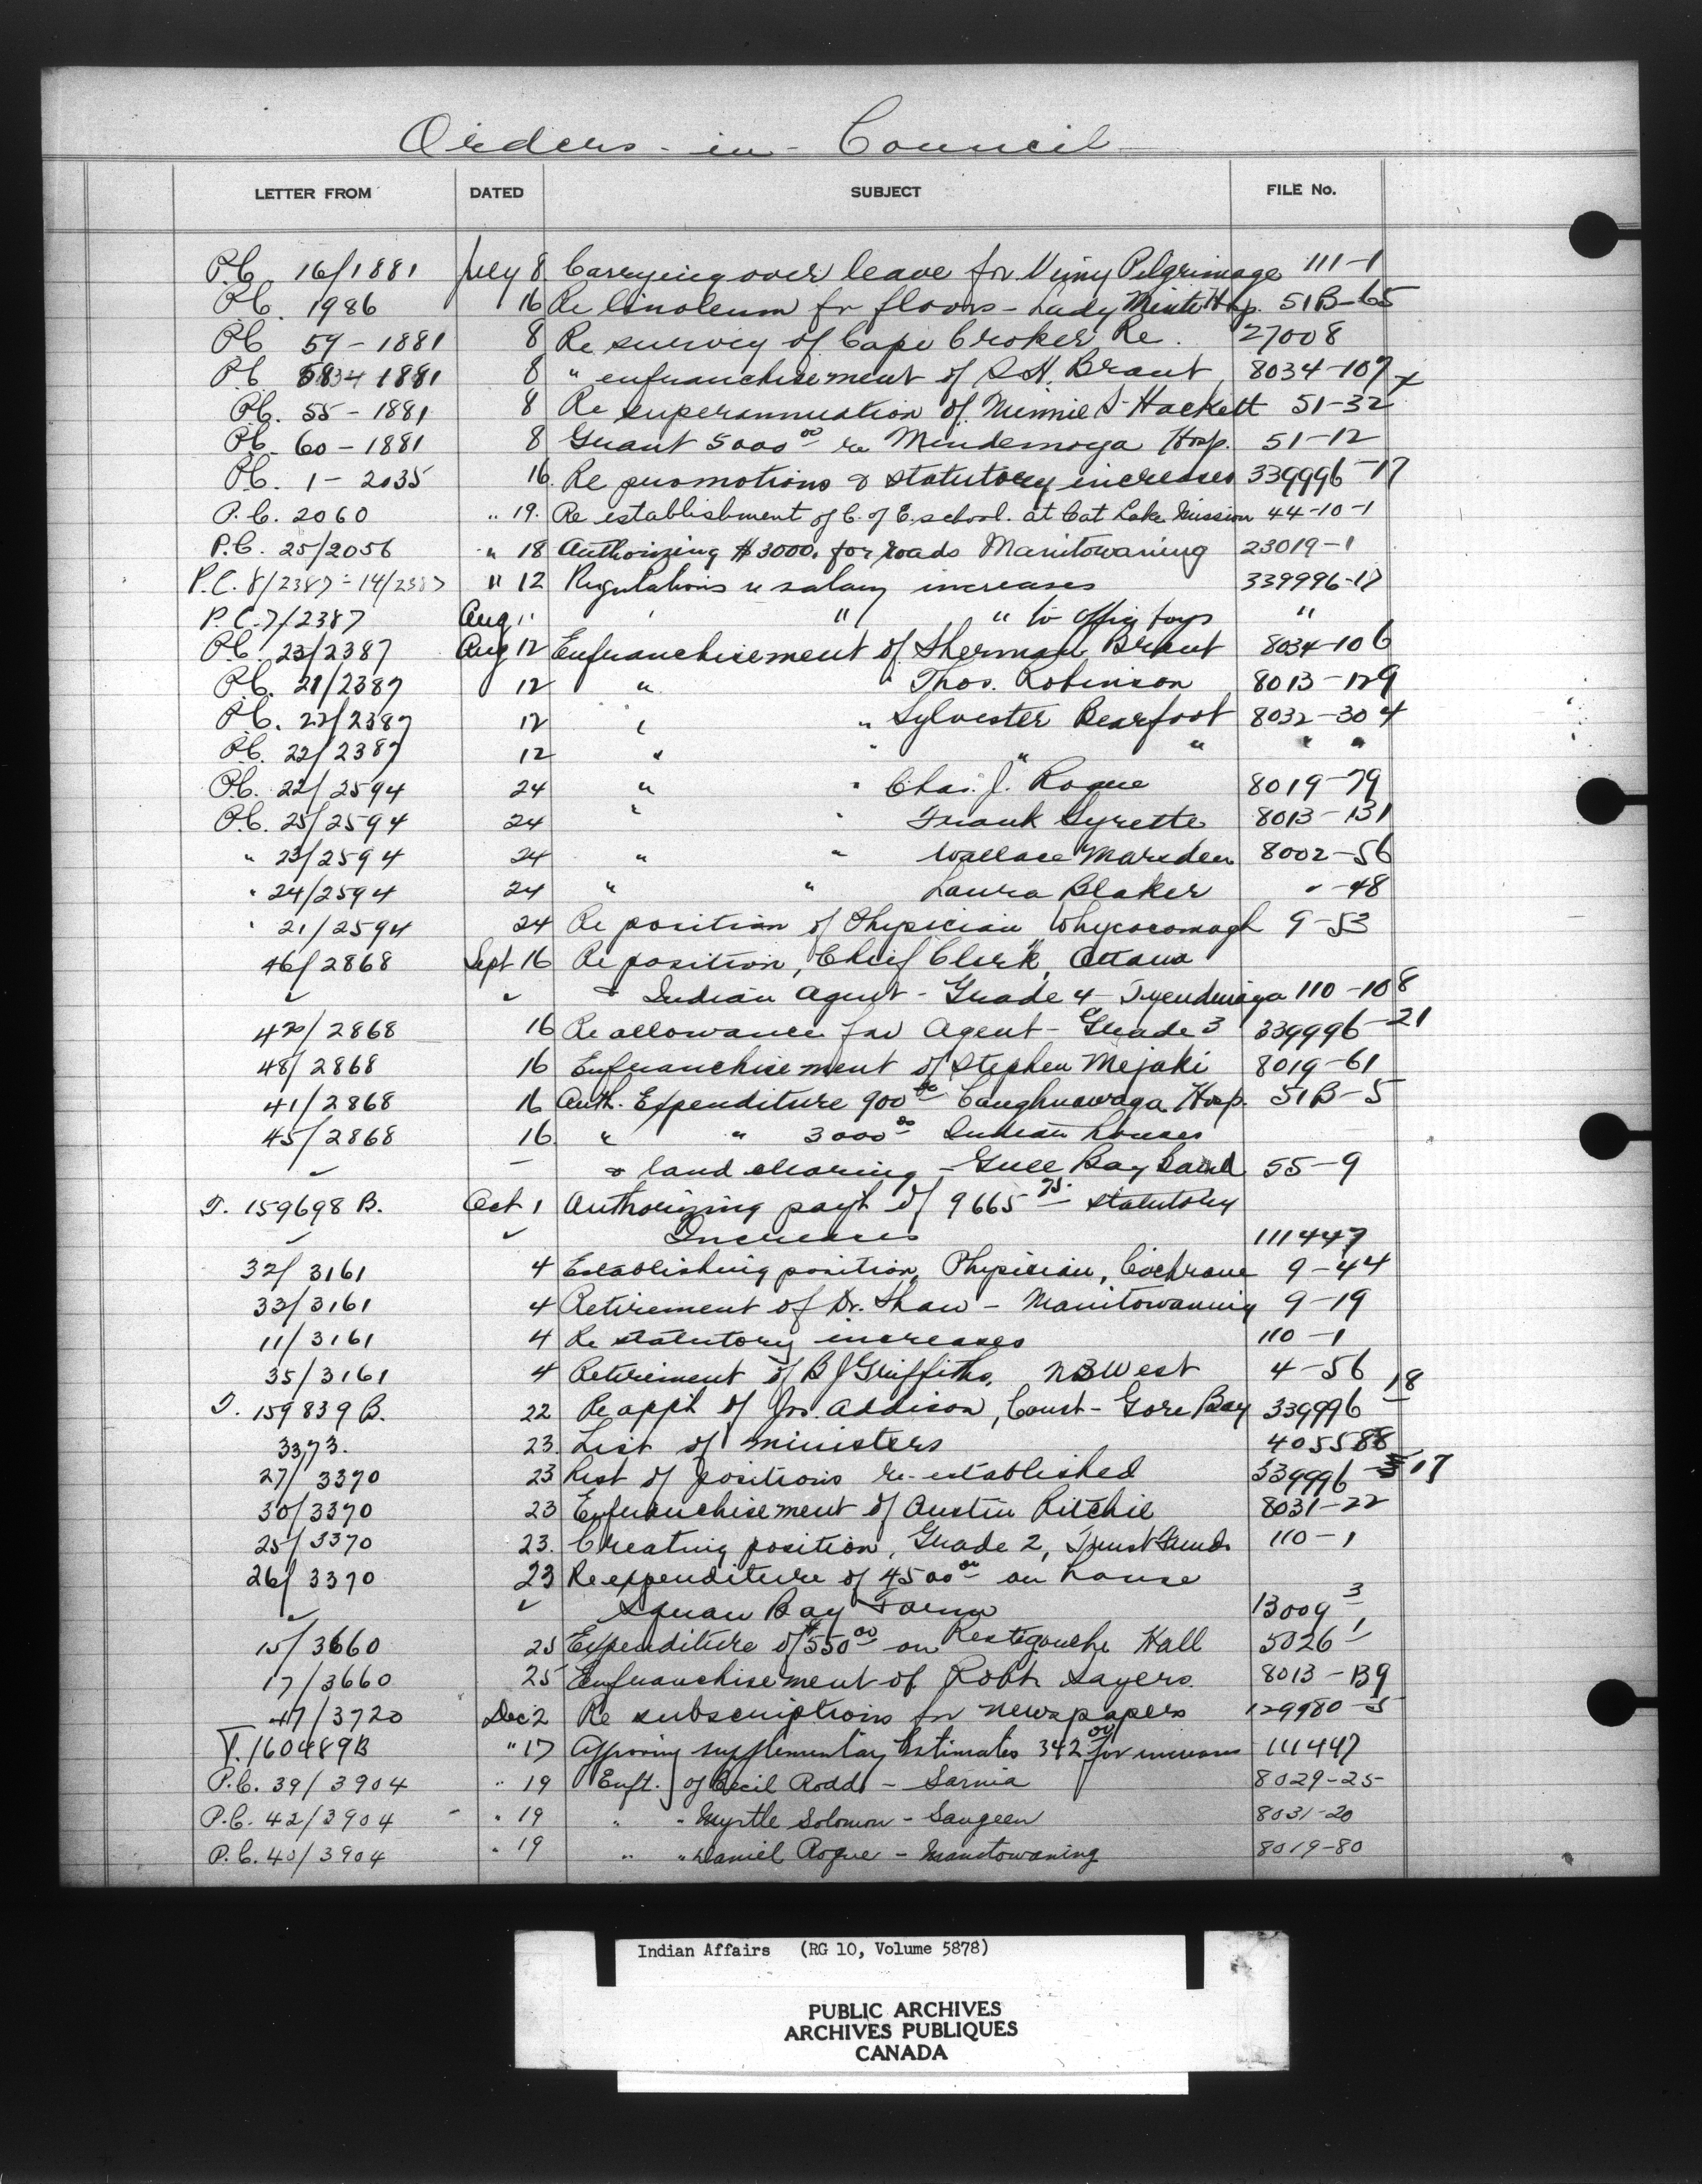 Orders - in - Council
LETTER FROM DATED SUBJECT FILE No.
P.C. 16/1881 July 8 Carrying over leave for Vimy Pilgrimage 111-1
P.C. 1986 16 Re linoleum for floors - Lady Minto Hosp. 51B-65
P.C. 59-1881 8 Re survey of Cape Croker Re. 27008
P.C. 1881 8 " enfranchisement of S.H. Brant 8034-107 x
P.C. 55-1881 8 Re superannuation of Minnie S. Hackett 51-32
P.C. 60-1881 8 Grant 5000 00 re Mindemoya Hosp. 51-12
P.C. 1-2035 16. Re promotions & statutory increases 339996-17
P.C. 2060 " 19. Re establishment of C. of E. school. at Cat Lake Mission 44-10-1
P.C. 25/2056 " 18 Authorizing $3000. for roads Manitowaning 23019-1
P.C. 8/2387 - 14/2387 " 12 Regulations re salary increases 339996-17
P.C. 7/2387 Aug " " " to office boys "
P.C. 23/2387 Aug 12 Enfranchisement of Sherman Brant 8034-106
P.C. 21/2387 12 " " Thos. Robinson 8013-129
P.C. 22/2387 12 " " Sylvester Bearfoot 8032-304
P.C. 22/2387 12 " " " " " "
P.C. 22/2594 24 " " Chas. J. Rogue 8019-79
P.C. 25/2594 24 " " Frank Syrette 8013-131
" 23/2594 24 " " Wallace Marsden 8002-56
" 24/2594 24 " " Laura Blaker " -48
" 21/2594 24 Re position of Physician Whycocomagh 9-53
46/2868 Sept 16 Re position, Chief Clerk, Ottawa
" " & Indian Agent - Grade 4 - Tyendinaga 110-108
42/2868 16 Re allowance for Agent - Grade 3 339996-21
48/2868 16 Enfranchisement of Stephen Mejaki 8019-61
41/2868 16 Auth. Expenditure 900 00 Caughnawaga Hosp. 51B-5
45/2868 16. " " 3000 00 Indian houses
" - & land clearing - Gull Bay Band 55-9
T. 159698 B. Oct 1 Authorizing pay't of 9665 75 statutory
" " Increases 111447
32/3161 4 Establishing position, Physician, Cochrane 9-44
33/3161 4 Retirement of Dr. Shaw - Manitowaning 9-19
11/3161 4 Re statutory increases 110-1
35/3161 4 Retirement of B J Griffiths, N B West 4-56
T. 159839 B. 22 Re app't of Jos. Addison, Const - Gore Bay 339996-18
3373. 23. List of ministers 405588
27/3370 23 List of positions re-established 339996-17
30/3370 23 Enfranchisement of Austin Ritchie 8031-22
25/3370 23. Creating position, Grade 2, Trust Funds 110-1
26/3370 23 Re expenditure of 4500 00 on house
" " Squaw Bay Farm 13009-3
15/3660 25 Expenditure of $550 00 on Restigouche Hall 5026-1
17/3660 25 Enfranchisement of Robt. Sayers. 8013-139
47/3720 Dec 2 Re subscriptions for newspapers 129980-5
T. 160489B " 17 Approving supplementary Estimates 342 00 for increases 111447
P.C. 39/3904 " 19 Enft. of Cecil Rodd - Sarnia 8029-25
P.C. 42/3904 - " 19 " " Myrtle Solomon - Saugeen 8031-20
P.C. 40/3904 " 19 " " Daniel Rogue - Manitowaning 8019-80
Indian Affairs (RG 10, Volume 5878)
PUBLIC ARCHIVES
ARCHIVES PUBLIQUES
CANADA